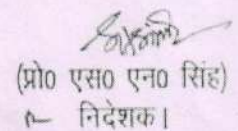 (प्रो0 एस0 एन0 सिंह)
निदेशक।